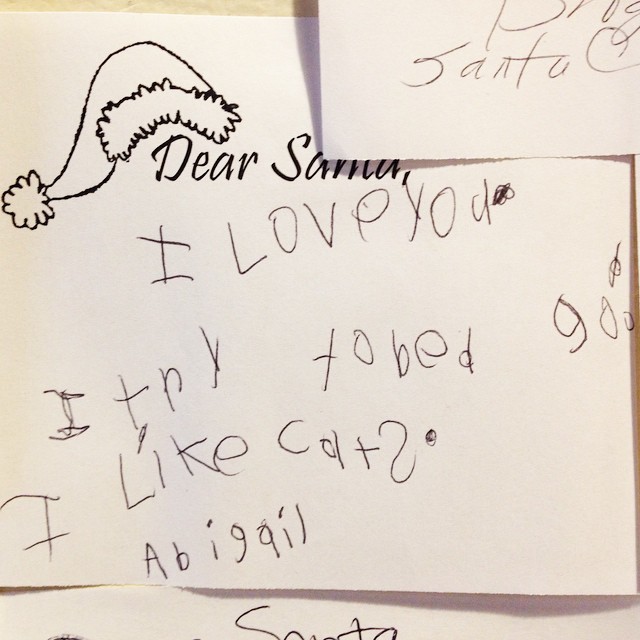 Santa
Dear Santa,
I LOVE YOU.
I try to bed good
I Like cats.
Abigail
Santa